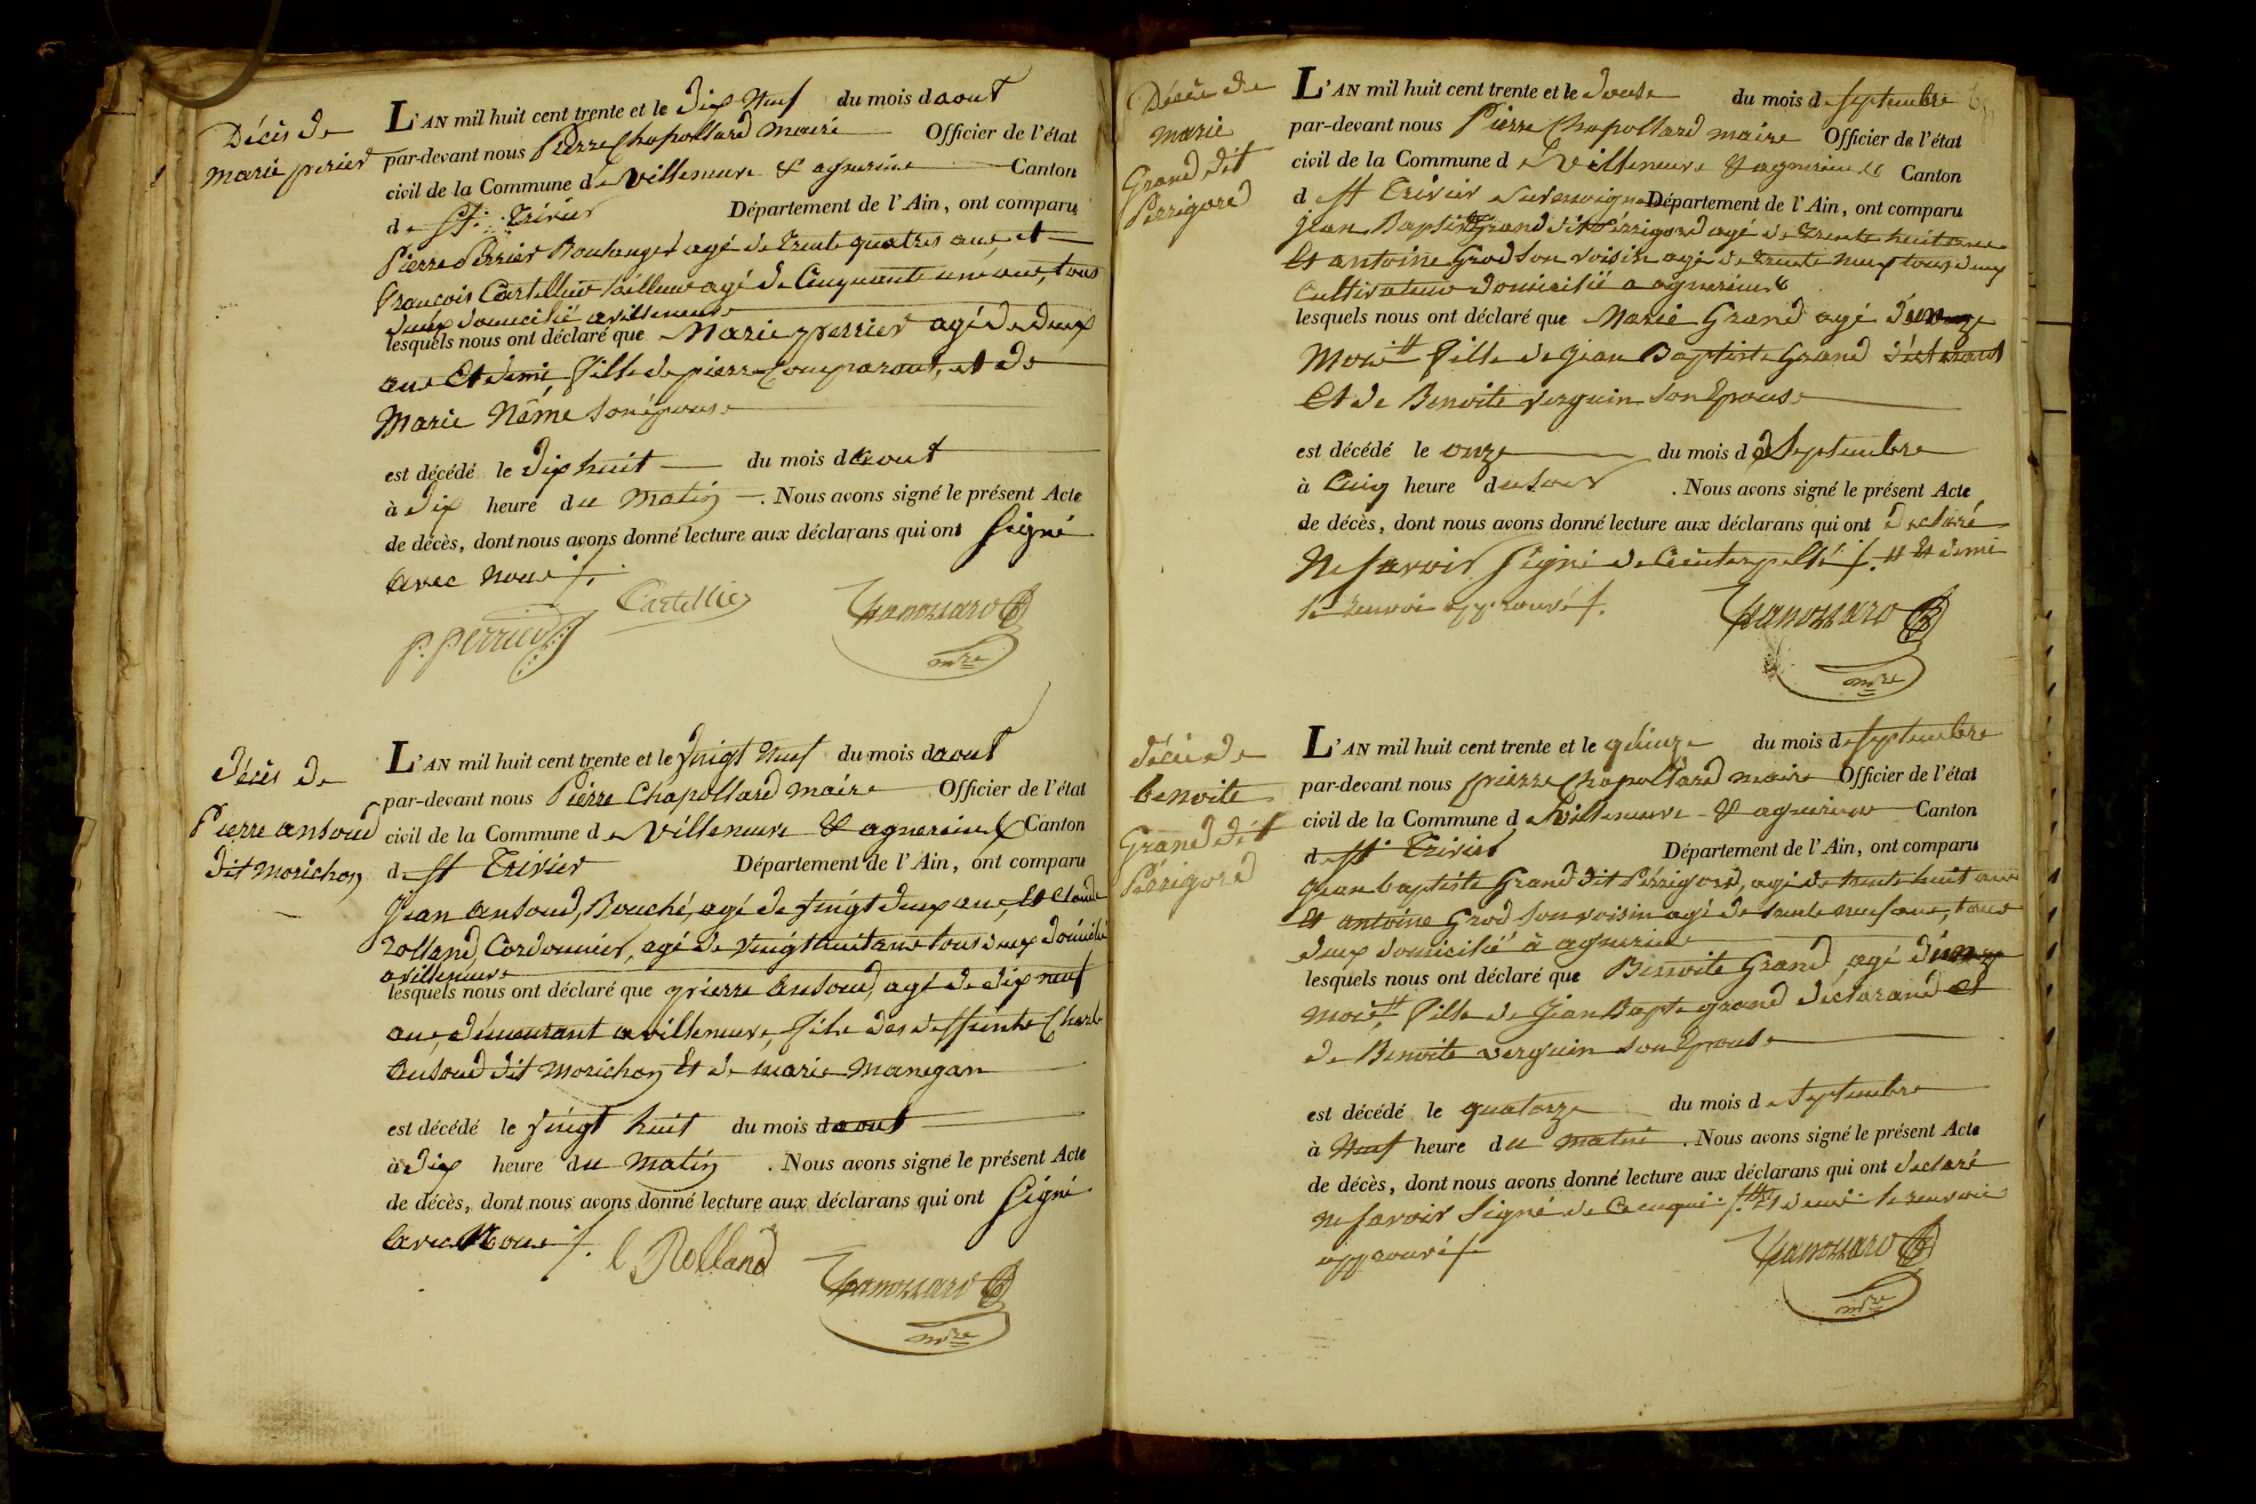 Décès de
marie perier
L'AN mil huit cent trente et le dix neuf du mois daout
par-devant nous Pierre Chapollard maire Officier de l'état
civil de la Commune de Villeneuve & agnereins Canton
de St. Trivier Département de l'Ain, ont comparu
Pierre Perrier Boulanger agé de trente quatres ans, et
françois Cartellier tailleur agé de Cinquante un ans, tous
deux domicilié a villeneuve
lesquels nous ont déclaré que Marie perrier agé de deux
ans et demi, fille de pierre Comparant, et de
Marie Nême son épouse
est décédé le dix huit du mois daout
à dix heure du matin . Nous avons signé le présent Acte
de décès, dont nous avons donné lecture aux déclarans qui ont signé
avec nous /.
P. Perrier Cartellier Chapollard
mre
Décès de
Pierre ansoud
dit morichon
L'AN mil huit cent trente et le vingt neuf du mois daout
par-devant nous Pierre Chapollard maire Officier de l'état
civil de la Commune de Villeneuve & agnereins Canton
de St Trivier Département de l'Ain, ont comparu
Jean ansoud, Bouché, agé de vingt deux ans, et Claude
rolland, Cordonnier, agé de vingt huit ans tous deux domicilié
a villeneuve
lesquels nous ont déclaré que pierre ansoud, agé de dix neuf
ans, demeurant a villeneuve, fils des deffunts Charle
ansoud dit morichon et de marie manegan
est décédé le vingt huit du mois daout
à dix heure du matin . Nous avons signé le présent Acte
de décès, dont nous avons donné lecture aux déclarans qui ont signé
avec Nous /.
C Rolland Chapollard
mre
Décès de
marie
Grand dit
Perrigord
L'AN mil huit cent trente et le douse du mois de septembre
par-devant nous Pierre Chapollard maire Officier de l'état
civil de la Commune de Villeneuve & agnereins Canton
de St Trivier surmoignans Département de l'Ain, ont comparu
jean Baptiste Grand dit Périgord agé de trente huit ans
et antoine Grod son voisin agé de trente neuf tous deux
Cultivateur domicilié a agnereins
lesquels nous ont déclaré que Marie Grand agé d'un
Mois # fille de jean Baptiste Grand déclarant
et de Benoite verguin son Epouse
est décédé le onze du mois de Septembre
à Cinq heure du soir . Nous avons signé le présent Acte
de décès, dont nous avons donné lecture aux déclarans qui ont déclaré
Ne savoir signé de Ce interpellé /. # et demi
le renvoi approuvé /. Chapollard
mre
décès de
benoite
Grand dit
Périgord
L'AN mil huit cent trente et le quinze du mois de septembre
par-devant nous pierre Chapollard maire Officier de l'état
civil de la Commune de Villeneuve & agnereins Canton
de St Trivier Département de l'Ain, ont comparu
jean baptiste Grand dit Périgord, agé de trente huit ans
et antoine Grod son voisin agé de trente neuf ans, tous
deux domicilié à agnereins
lesquels nous ont déclaré que Benoite Grand, agé d'un
mois #, fille de Jean Bapte grand déclarand et
de Benoite verguin son Epouse
est décédé le quatorze du mois de Septembre
à Neuf heure du matin . Nous avons signé le présent Acte
de décès, dont nous avons donné lecture aux déclarans qui ont déclaré
ne savoir signé de Ce requi /. # et demi le renvoi
approuvé /. Chapollard
mre